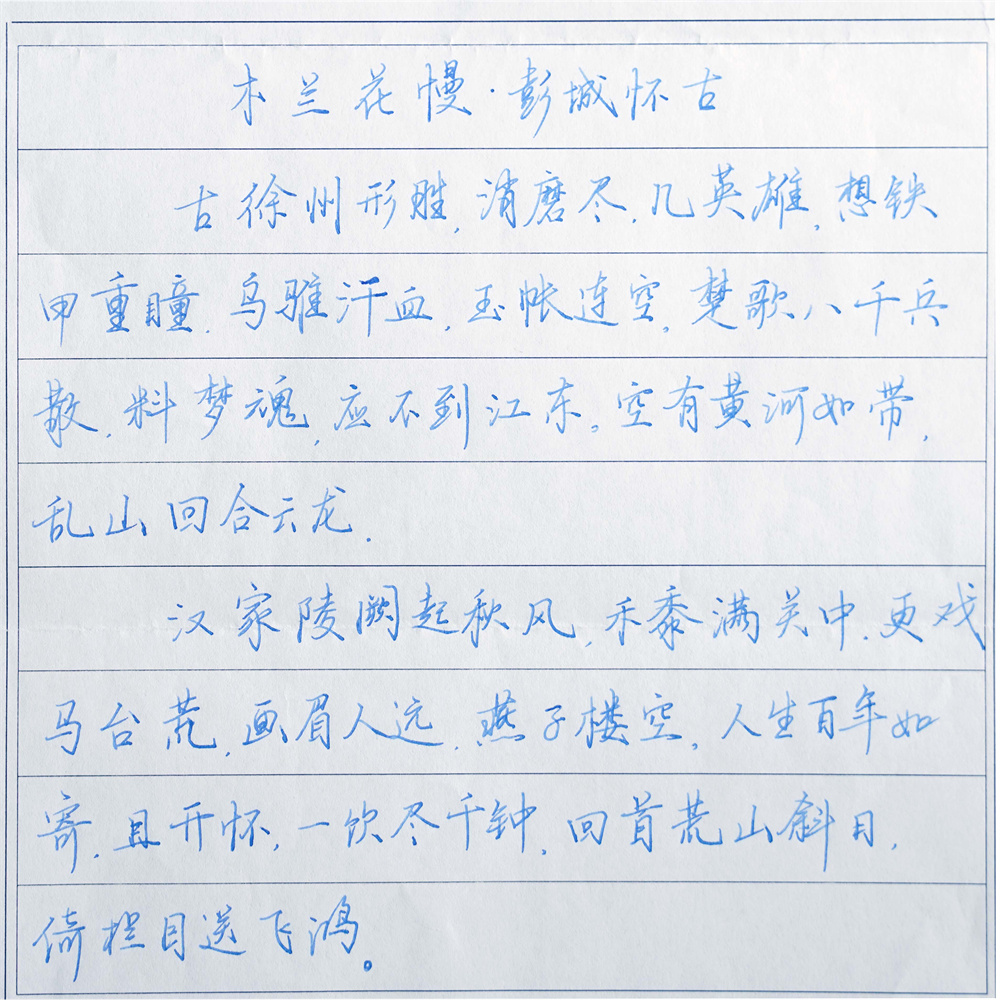 木兰花慢·彭城怀古
古徐州形胜,消磨尽,几英雄,想铁
甲重瞳,乌骓汗血,玉帐连空。楚歌八千兵
散,料梦魂,应不到江东。空有黄河如带,
乱山回合云龙.
汉家陵阙起秋风,禾黍满关中.更戏
马台荒,画眉人远,燕子楼空。人生百年如
寄,且开怀,一饮尽千钟,回首荒山斜日,
倚栏目送飞鸿。